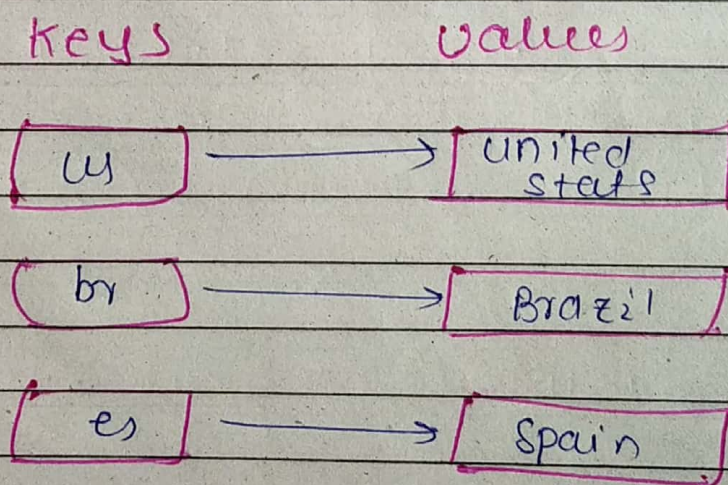 Keys values
us united
stats
br Brazil
es Spain